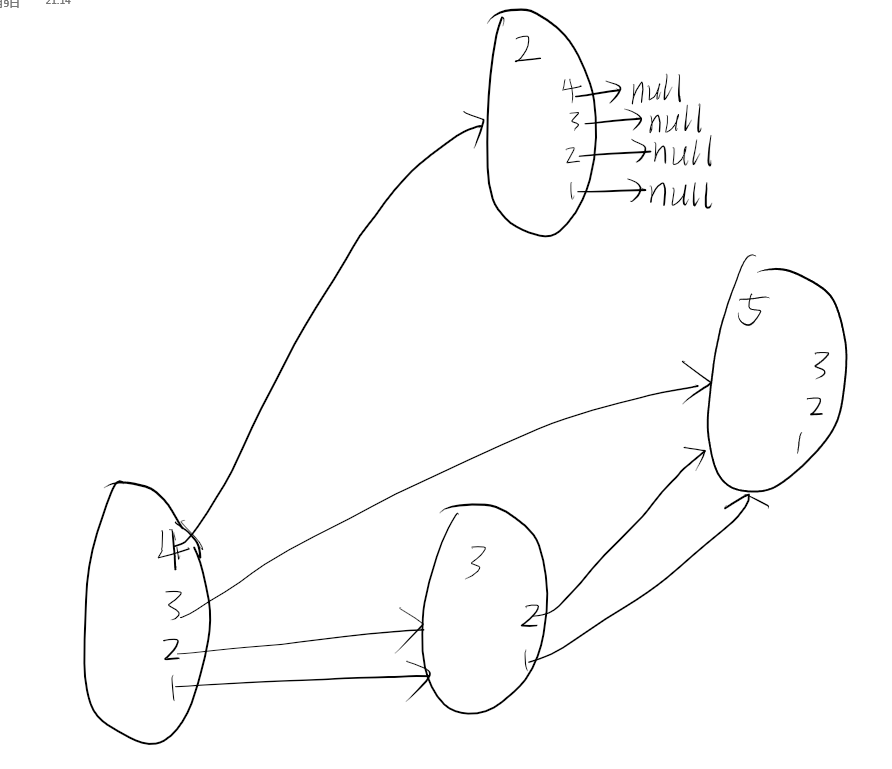 21:14
2
4 null
3 null
2 null
1 null
5
3
2
1
4
3
2
1
3
2
1